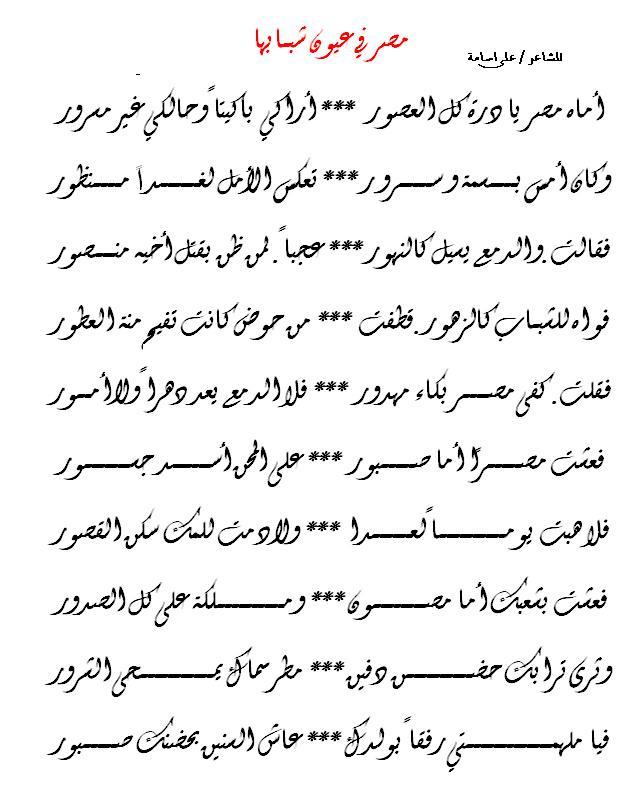 مصر في عيون شبابها
للشاعر / على اسامة
أماه مصر يا درة كل العصور *** أراكي باكيتاً وحالكي غير مسرور
وكان أمس بسمة وسرور *** تعكس الأمل لغداً منظور
فقالت .والدمع يسيل كالنهور *** عجباً .لمن ظن بقتل أخيه منصور
فواه للشباب كالزهور .قطفت *** من حوض كانت تفيح منة العطور
فقلت .كفى مصر بكاء مهدور *** فلا الدمع يعد دهراً ولا أمور
فعشت مصراً أما صبور *** على المحن أسد جسور
فلا هبت يوماً لعدا *** ولا دمت للمك سكن القصور
فعشت بشعبك أما مصون *** وملكة على كل الصدور
وثرى ترابك حضن دفين *** مطر سماك يمحى الشرور
فيا ملهمتي رفقاً بولدك *** عاش السنين بحضنك صبور